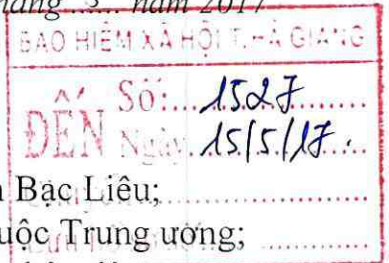 tháng 3 năm 2017
BẢO HIỂM XÃ HỘI T. HÀ GIANG
ĐẾN
Số: 1527
Ngày 15/5/17
Bạc Liêu;
thuộc Trung ương;